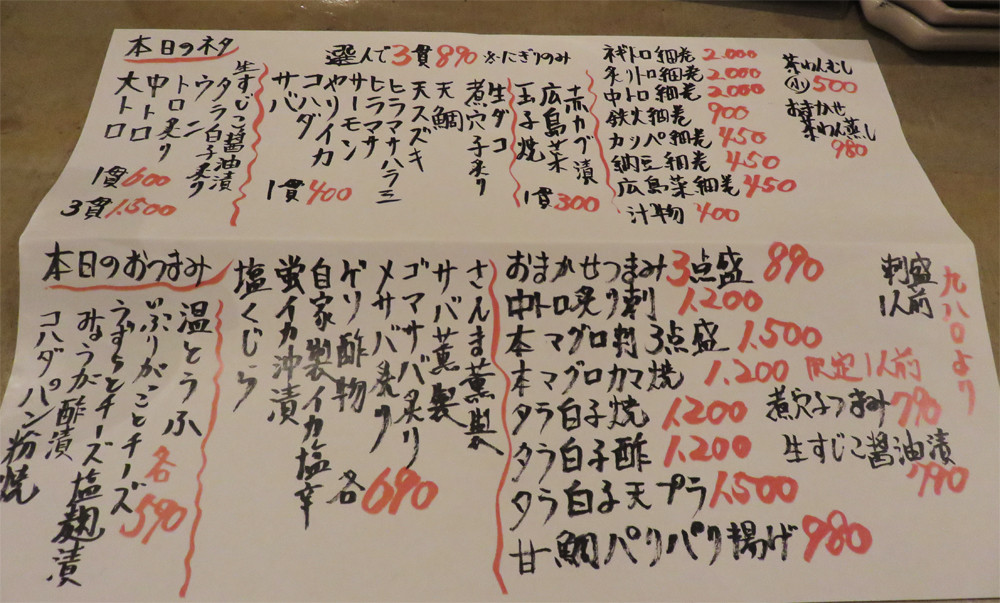 本日のネタ
生すじこ醤油漬
タラ白子炙り
ウニ
トロ炙り
中トロ
大トロ
1貫600
3貫1.500
選んで3貫890 ※にぎりのみ
生ダコ
煮穴子炙り
天鯛
天スズキ
ヒラマサハラミ
ヒラマサ
サーモン
やりイカ
コハダ
サバ
1貫400
赤カブ漬
広島菜
玉子焼
1貫300
ネギトロ細巻 2.000
炙りトロ細巻 2.000
中トロ細巻 2.000
鉄火細巻 900
カッパ細巻 450
納豆細巻 450
広島菜細巻 450
汁物 400
茶わんむし
小 500
おまかせ
茶わん蒸し
980
本日のおつまみ
温とうふ
いぶりがっことチーズ
うずらとチーズ塩麹漬
みょうが酢漬
コハダパン粉焼
各590
さんま薫製
サバ薫製
ゴマサバ炙り
〆サバ炙り
ゲソ酢物
自家製イカ塩辛
蛍イカ沖漬
塩くじら
各690
おまかせつまみ3点盛 890
中トロ炙り刺 1.200
本マグロ刺3点盛 1.500
本マグロカマ焼 1.200 限定1人前
タラ白子焼 1.200
タラ白子酢 1.200
タラ白子天プラ 1.500
甘鯛パリパリ揚げ 980
刺盛
1人前
九八〇より
煮穴子つまみ 790
生すじこ醤油漬
790